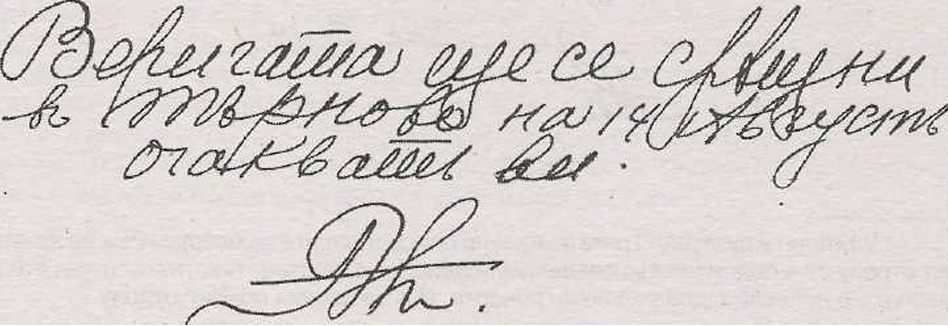 Веригата ще се срѣщни
в Търново на 14 Августъ
очакватъ ви.